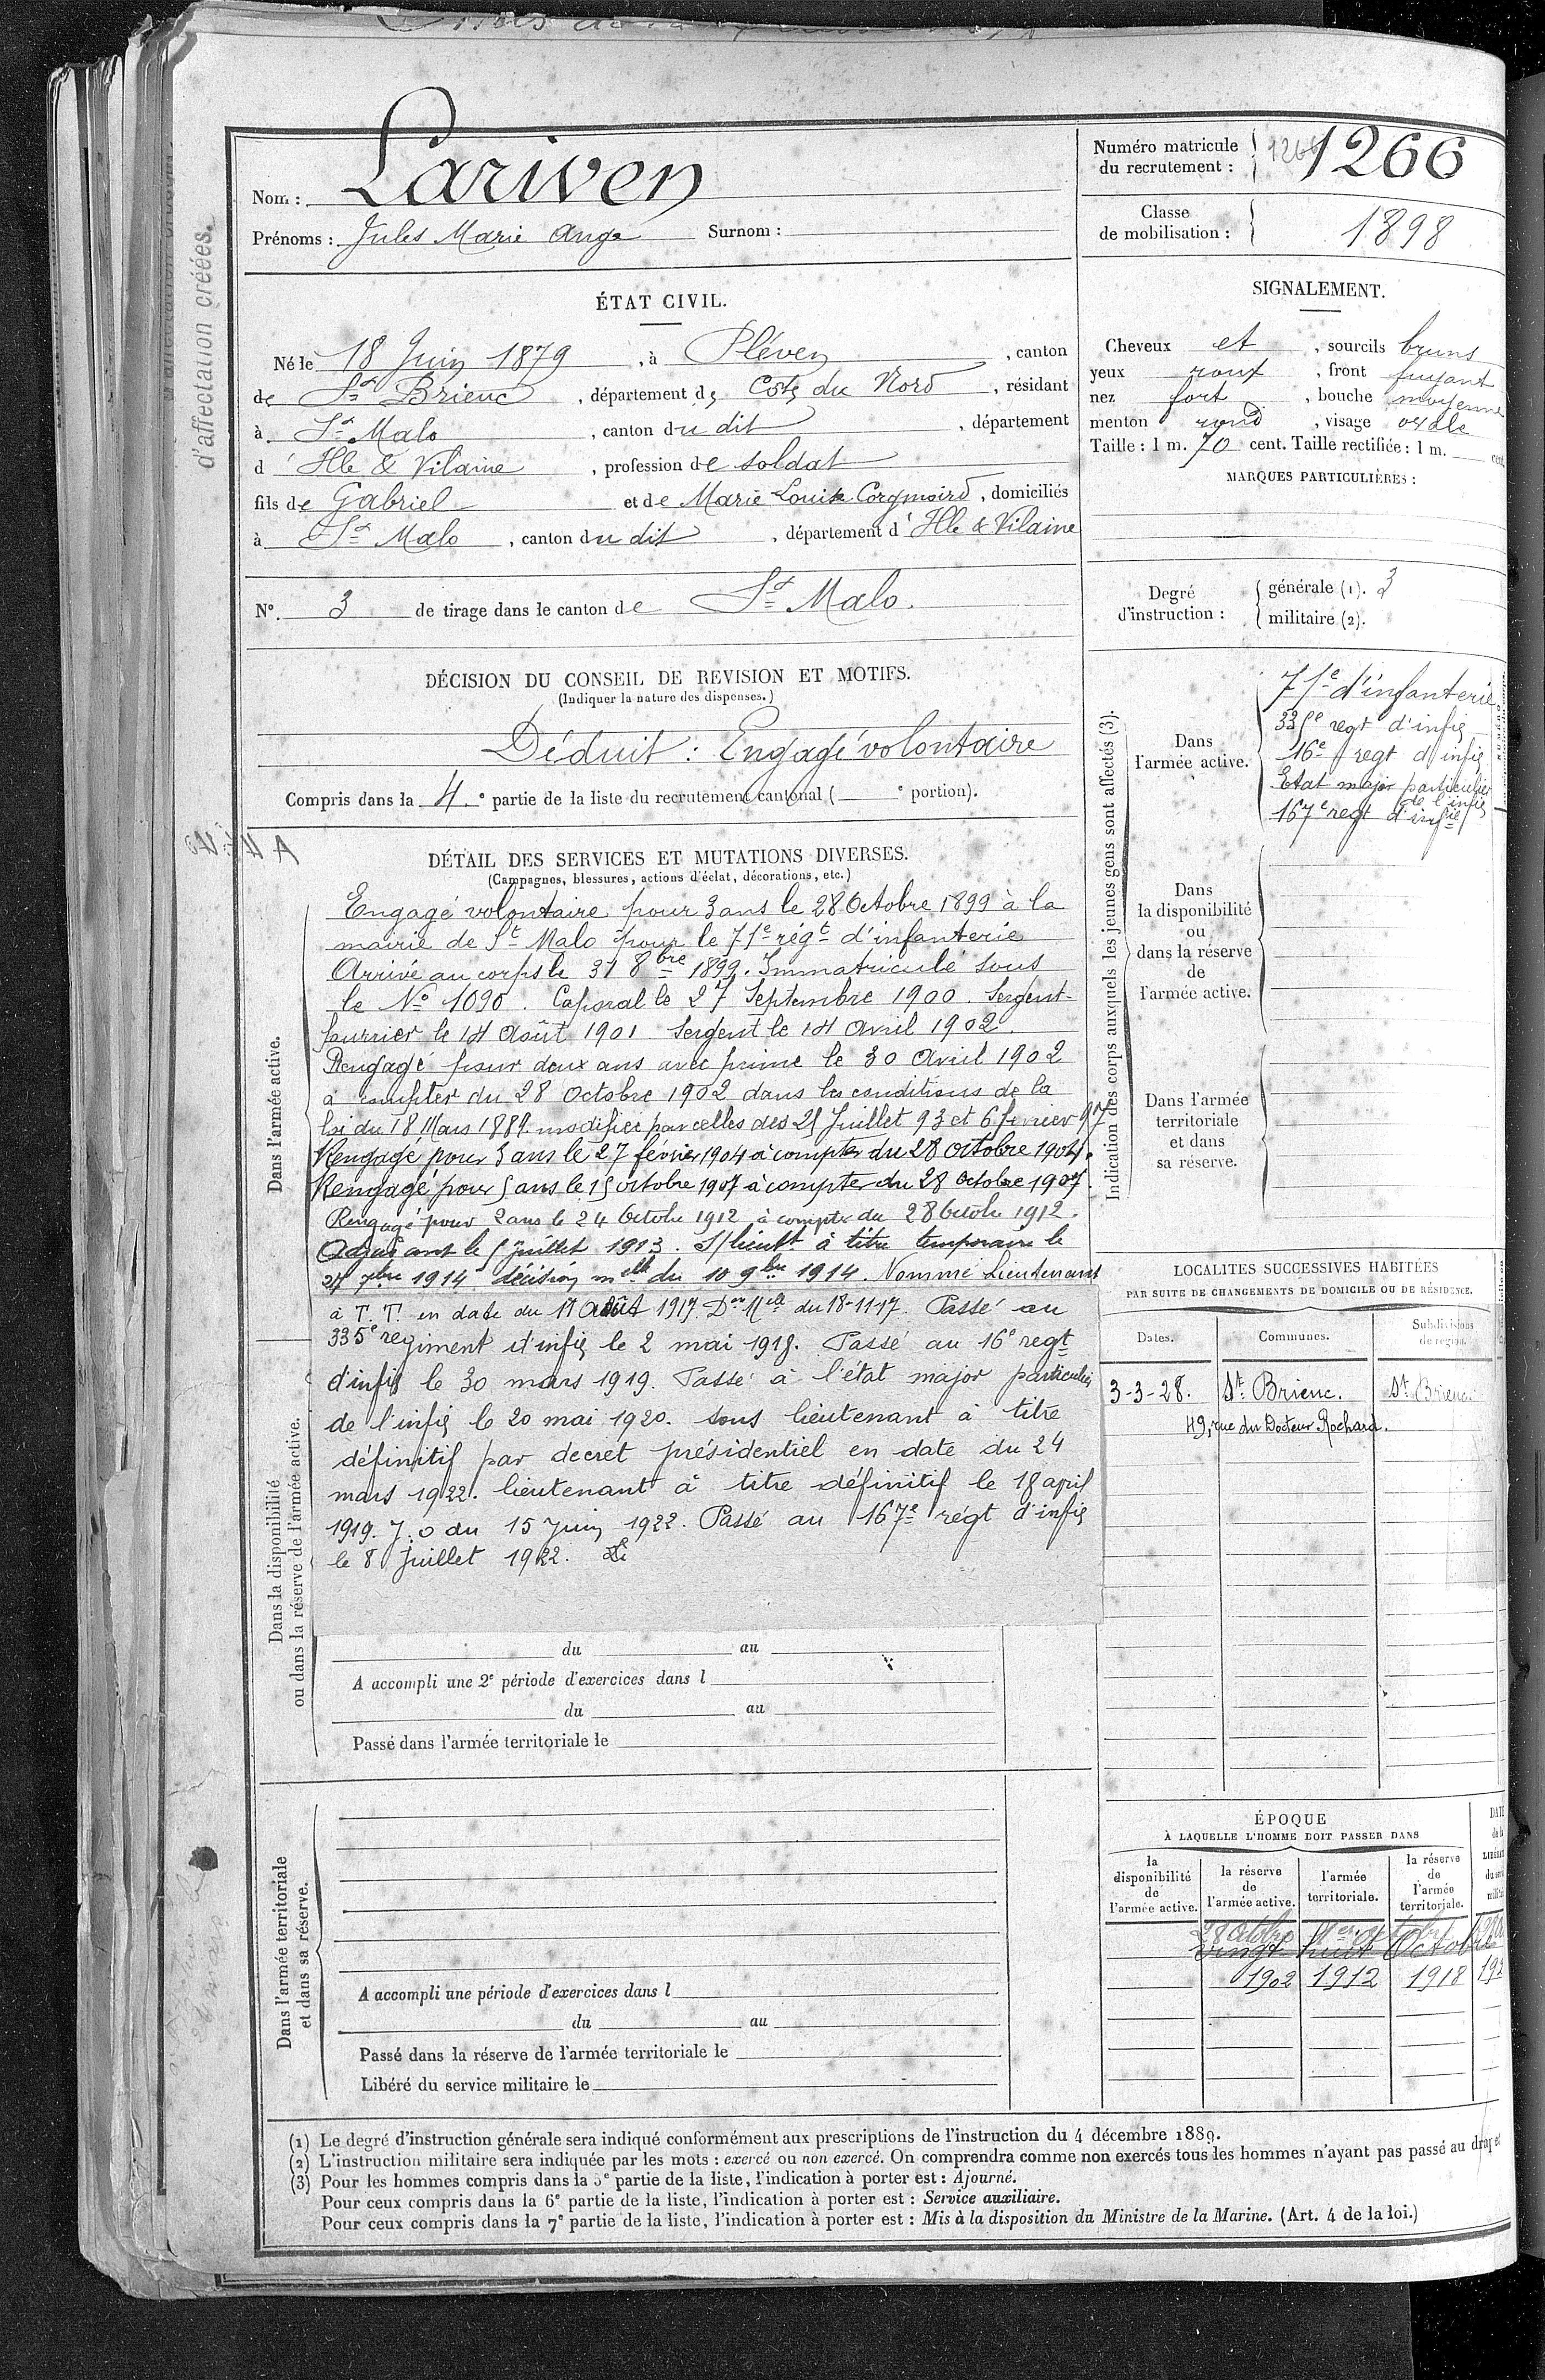 d'affectation créées.
Nom : Lariven
Prénoms : Jules Marie Ange Surnom :
Numéro matricule du recrutement : 1266 1266
Classe de mobilisation : 1898
ÉTAT CIVIL.
Né le 18 Juin 1879, à Pléven, canton
de St Brieuc, département des Côtes du Nord, résidant
à St Malo, canton du dit, département
d'Ille & Vilaine, profession de soldat
fils de Gabriel et de Marie Louise, domiciliés
à St Malo, canton du dit, département d'Ille & Vilaine
SIGNALEMENT.
Cheveux et, sourcils bruns
yeux roux, front fuyant
nez fort, bouche moyenne
menton rond, visage ovale
Taille : 1 m. 70 cent. Taille rectifiée : 1 m. cent.
MARQUES PARTICULIÈRES :
N° 3 de tirage dans le canton de St Malo.
Degré d'instruction :
générale (1). 3
militaire (2).
DÉCISION DU CONSEIL DE REVISION ET MOTIFS.
(Indiquer la nature des dispenses.)
Déduit : Engagé volontaire
Compris dans la 4e partie de la liste du recrutement cantonal ( e portion).
Indication des corps auxquels les jeunes gens sont affectés (3).
Dans l'armée active.
71e d'infanterie
335e regt d'infie
16e regt d'infie
Etat major particulier
de l'infie
167e regt d'infie
Dans
la disponibilité
ou
dans la réserve
de
l'armée active.
Dans l'armée
territoriale
et dans
sa réserve.
DÉTAIL DES SERVICES ET MUTATIONS DIVERSES.
(Campagnes, blessures, actions d'éclat, décorations, etc.)
Dans l'armée active.
Engagé volontaire pour 3 ans le 28 Octobre 1899 à la
mairie de St Malo pour le 71e régt d'infanterie
Arrivé au corps le 31 8bre 1899. Immatriculé sous
le No 1090. Caporal le 27 Septembre 1900. Sergent-
fourrier le 14 Août 1901. Sergent le 14 Avril 1902.
Rengagé pour deux ans avec prime le 30 Avril 1902
à compter du 28 Octobre 1902 dans les conditions de la
loi du 18 Mars 1889 modifiée par celles des 21 Juillet 93 et 6 fevrier 97
Rengagé pour 3 ans le 27 février 1904 à compter du 28 octobre 1904.
Rengagé pour 5 ans le 15 octobre 1907 à compter du 28 Octobre 1907.
Rengagé pour 2 ans le 24 Octobre 1912 à compter du 28 Octobre 1912.
Adjudant le 5 Juillet 1913. S/lieutt à titre temporaire le
27 7bre 1914 décision melle du 10 9bre 1914. Nommé Lieutenant
à T.T. en date du 11 Août 1917. Don Melle du 18-11-17. Passé au
335e regiment d'infie le 2 mai 1918. Passé au 16e regt
d'infie le 30 mars 1919. Passé à l'état major particulier
de l'infie le 20 mai 1920. sous lieutenant à titre
définitif par decret présidentiel en date du 24
mars 1922. lieutenant à titre définitif le 18 april
1919. J.O du 15 Juin 1922. Passé au 167e régt d'infie
le 8 Juillet 1922.
Dans la disponibilité
ou dans la réserve de l'armée active.
du au
A accompli une 2e période d'exercices dans l
du au
Passé dans l'armée territoriale le
Dans l'armée territoriale
et dans sa réserve.
A accompli une période d'exercices dans l
du au
Passé dans la réserve de l'armée territoriale le
Libéré du service militaire le
LOCALITÉS SUCCESSIVES HABITÉES
PAR SUITE DE CHANGEMENTS DE DOMICILE OU DE RÉSIDENCE.
Dates. Communes. Subdivisions de région.
3-3-28. St Brieuc. St Brieuc
49, rue du Docteur Rochard.
ÉPOQUE
À LAQUELLE L'HOMME DOIT PASSER DANS
la disponibilité de l'armée active.
la réserve de l'armée active.
l'armée territoriale.
la réserve de l'armée territoriale.
DATE
28 Octobre 1er octobre
vingt huit Octobre
1902 1912 1918 192
(1) Le degré d'instruction générale sera indiqué conformément aux prescriptions de l'instruction du 4 décembre 1889.
(2) L'instruction militaire sera indiquée par les mots : exercé ou non exercé. On comprendra comme non exercés tous les hommes n'ayant pas passé au drapeau
(3) Pour les hommes compris dans la 5e partie de la liste, l'indication à porter est : Ajourné.
Pour ceux compris dans la 6e partie de la liste, l'indication à porter est : Service auxiliaire.
Pour ceux compris dans la 7e partie de la liste, l'indication à porter est : Mis à la disposition du Ministre de la Marine. (Art. 4 de la loi.)